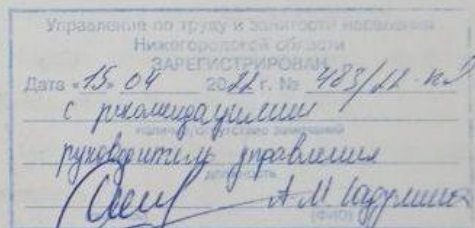 Управление по труду и занятости населения
Нижегородской области
ЗАРЕГИСТРИРОВАН
Дата «15» 04 2022 г. №
с рекомендациями
наличие/отсутствие замечаний
руководитель управления
должность
А.М.
(ФИО)